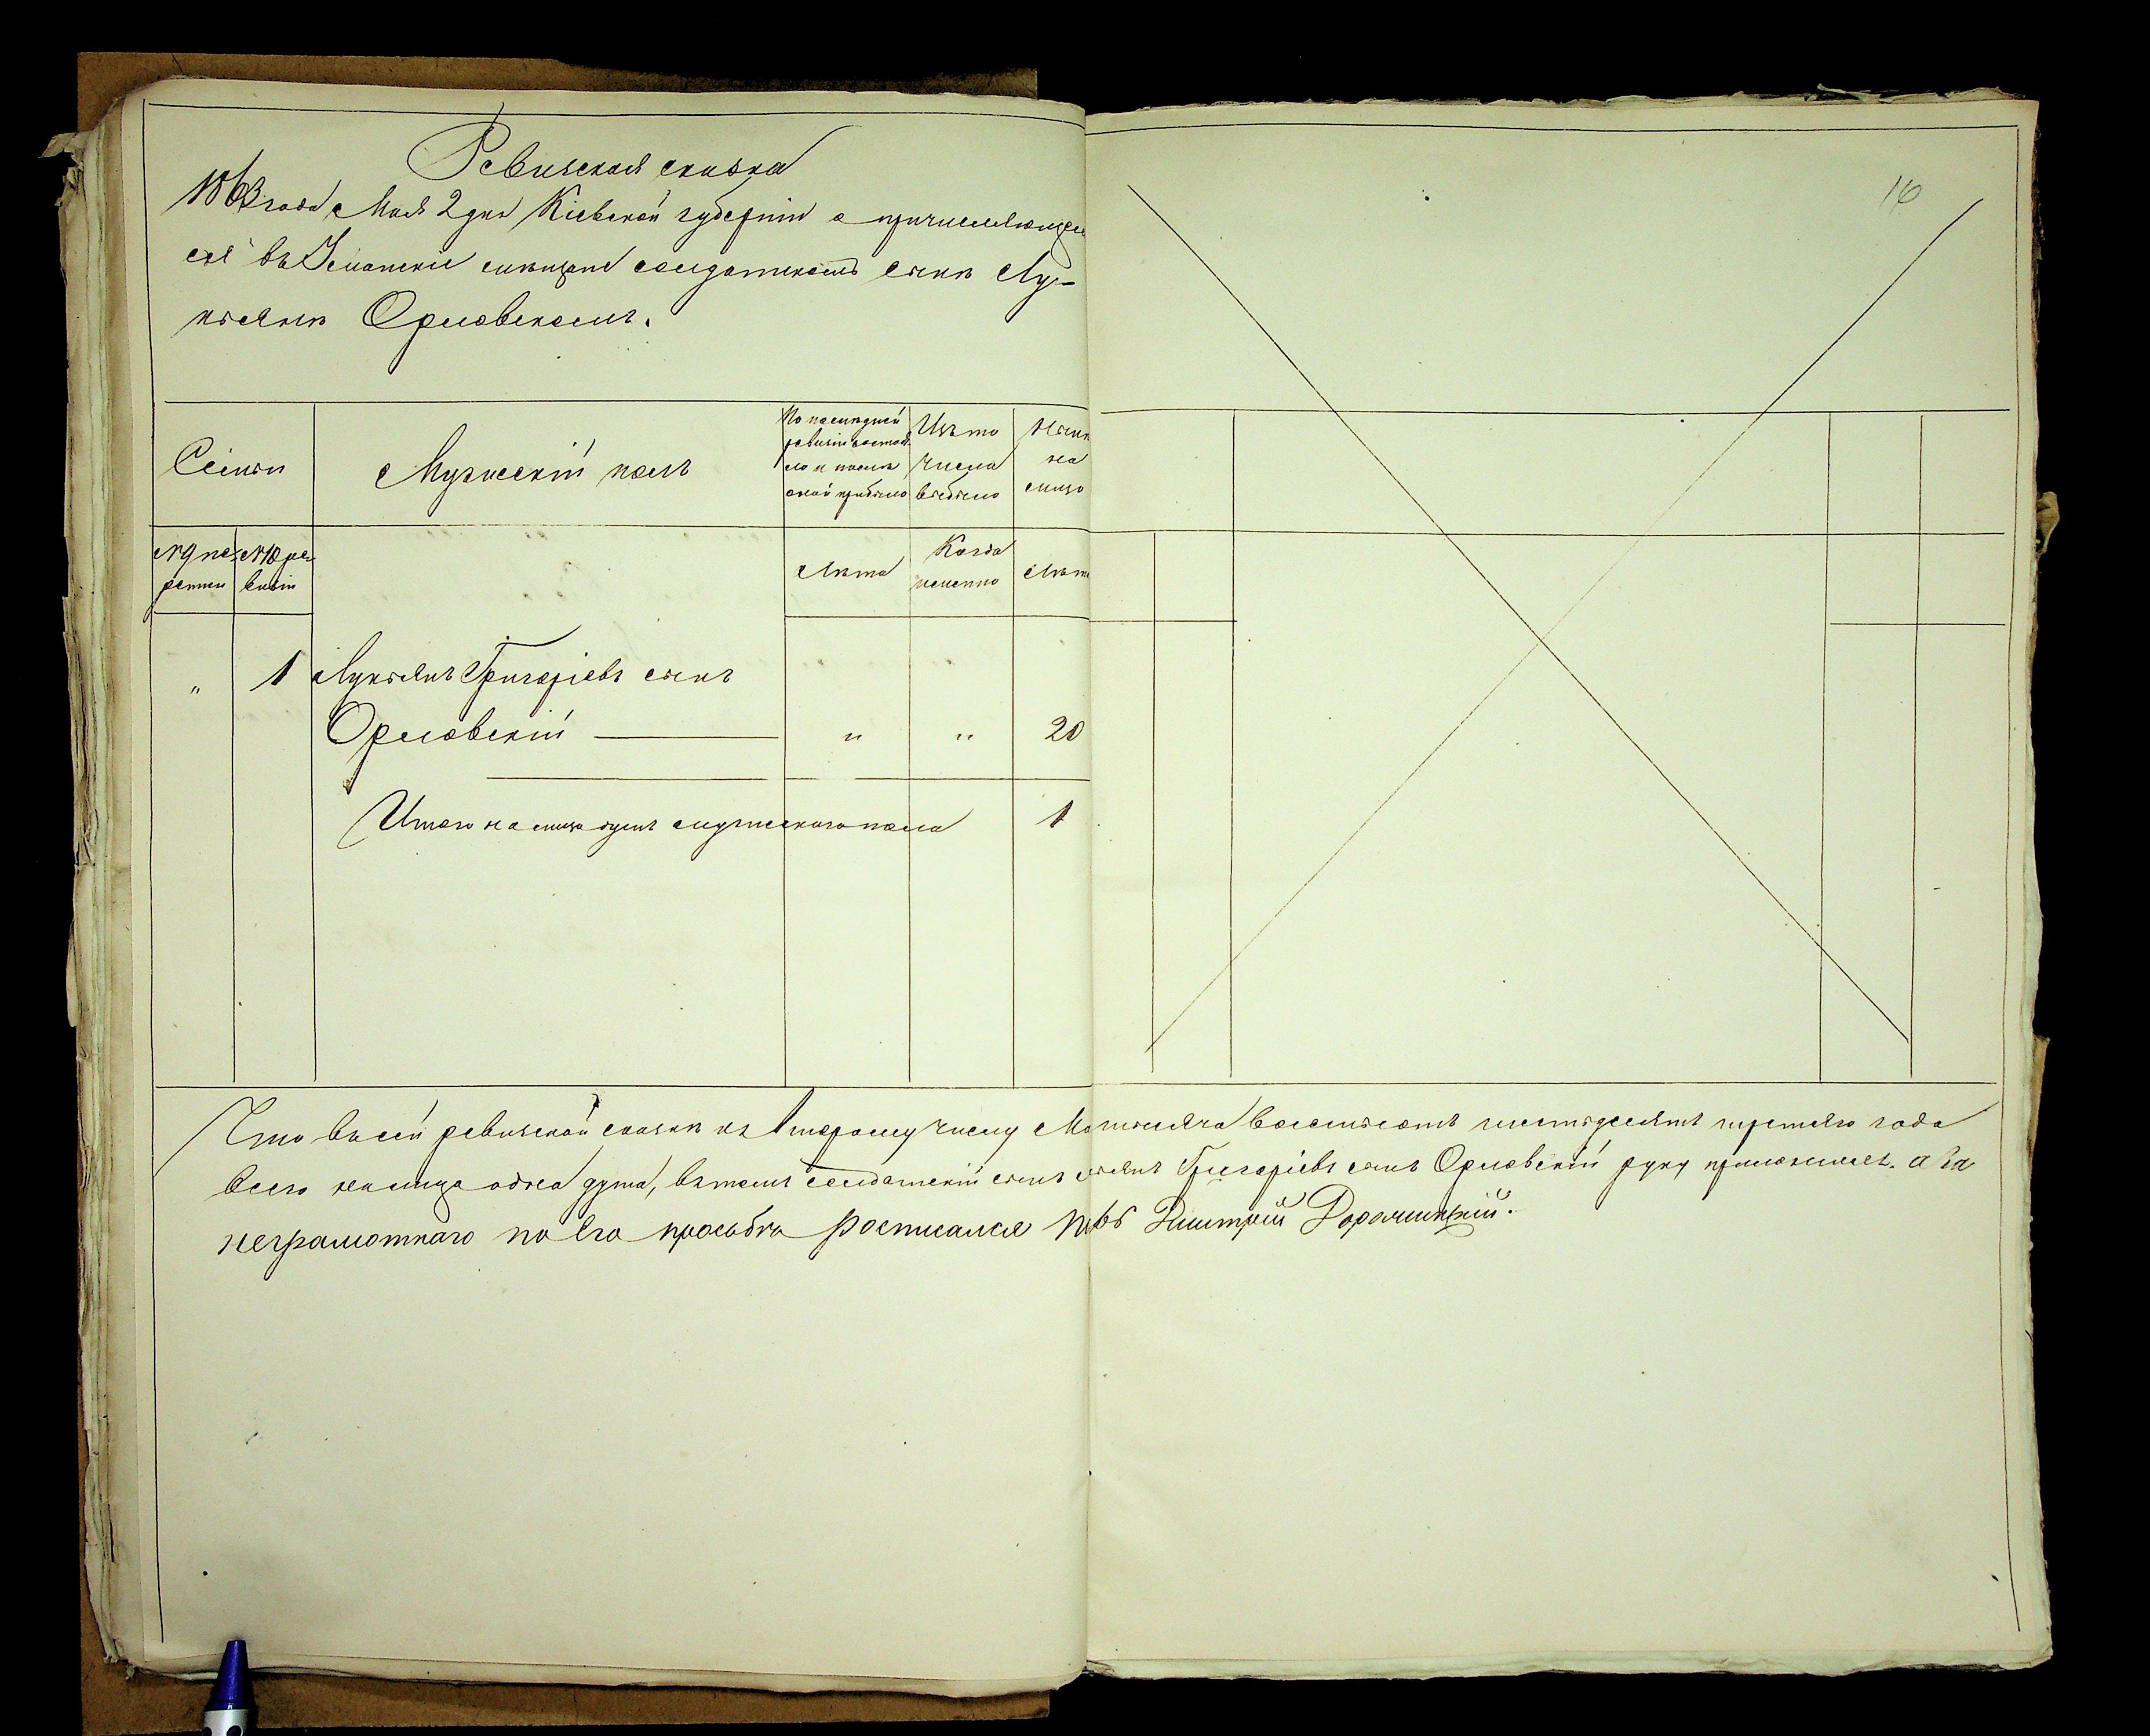 Ревизская сказка
16
1863 года Мая 2 дня Кіевской губерніи о причисляющем
ся въ Уманскіе мѣщане солдатскомъ сынѣ Лу-
кьянѣ Орловскомъ.
Семьи
Мужескій полъ
По послѣдней
ревизіи состоя-
ло и послѣ
оной прибыло
Изъ то
числа
выбыло
Нынѣ
на
лицо
№ 9 ре
№ 10 ре
визіи
Лѣта
Когда
именно
Лѣт
" 1 Лукьянъ Григорьевъ сынъ
Орловскій " " 20
Итого на лицо душъ мужескаго пола 1
Что въ сей ревизской сказкѣ къ второму числу Ма мѣсяца восемьсотъ шестьдесятъ третьяго года
всего на лицо одна душа, въ томъ солдатскій сынъ Григорьевъ сынъ Орловскій руку приложилъ. а за
неграмотнаго по его просьбѣ росписался Дмитрій